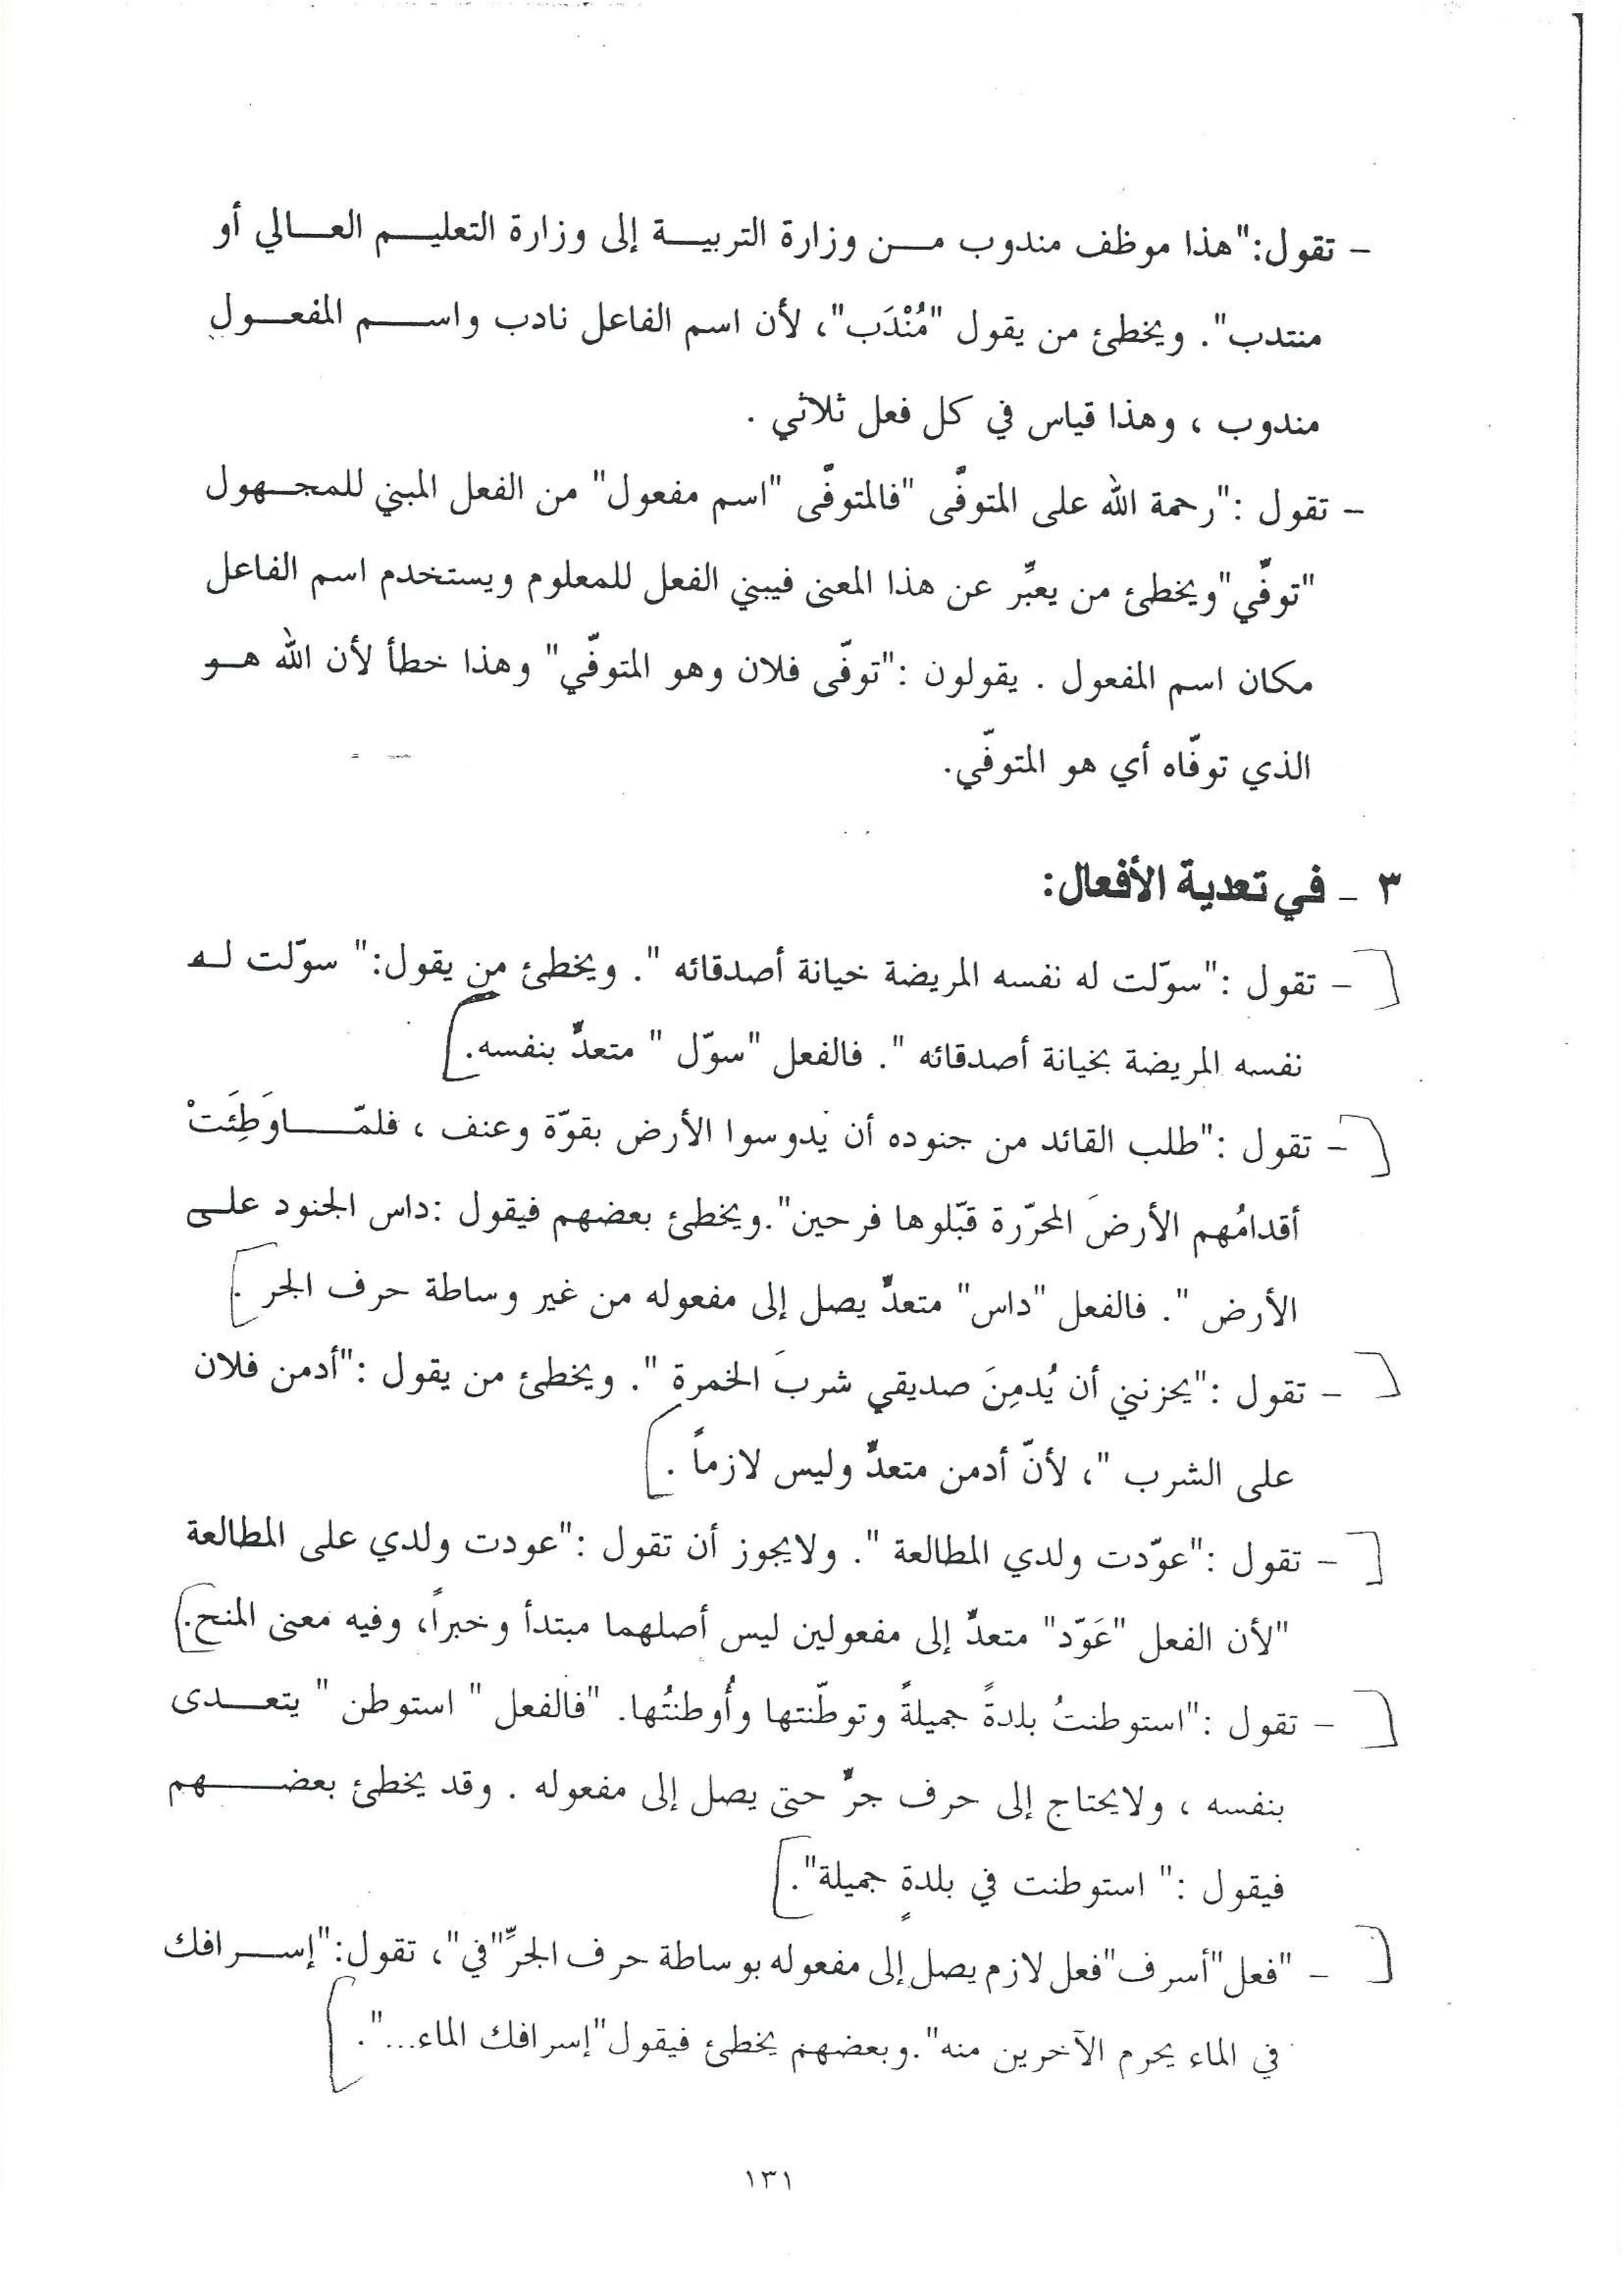 – تقول:"هذا موظف مندوب من وزارة التربية إلى وزارة التعليم العالي أو
منتدب". ويخطئ من يقول "مُنْدَب"، لأن اسم الفاعل نادب واسم المفعول
مندوب ، وهذا قياس في كل فعل ثلاثي .
– تقول :"رحمة الله على المتوفّى "فالمتوفّى "اسم مفعول" من الفعل المبني للمجهول
"توفّي"ويخطئ من يعبِّر عن هذا المعنى فيبني الفعل للمعلوم ويستخدم اسم الفاعل
مكان اسم المفعول . يقولون :"توفّى فلان وهو المتوفّي" وهذا خطأ لأن الله هو
الذي توفّاه أي هو المتوفّي.
٣ – في تعدية الأفعال:
– تقول :"سوّلت له نفسه المريضة خيانة أصدقائه ". ويخطئ من يقول:" سوّلت له
نفسه المريضة بخيانة أصدقائه ". فالفعل "سوّل " متعدٍّ بنفسه.
– تقول :"طلب القائد من جنوده أن يدوسوا الأرض بقوّة وعنف ، فلمّا وَطِئَتْ
أقدامُهم الأرضَ المحرّرة قبّلوها فرحين".ويخطئ بعضهم فيقول :داس الجنود على
الأرض ". فالفعل "داس" متعدٍّ يصل إلى مفعوله من غير وساطة حرف الجر .
– تقول :"يحزنني أن يُدمِنَ صديقي شربَ الخمرة ". ويخطئ من يقول :"أدمن فلان
على الشرب "، لأنّ أدمن متعدٍّ وليس لازماً .
– تقول :"عوّدت ولدي المطالعة ". ولايجوز أن تقول :"عودت ولدي على المطالعة
"لأن الفعل "عَوّد" متعدٍّ إلى مفعولين ليس أصلهما مبتدأ وخبراً، وفيه معنى المنح.
– تقول :"استوطنتُ بلدةً جميلةً وتوطّنتها وأُوطنتُها. "فالفعل " استوطن " يتعدى
بنفسه ، ولايحتاج إلى حرف جرٍّ حتى يصل إلى مفعوله . وقد يخطئ بعضهم
فيقول :" استوطنت في بلدةٍ جميلة".
– "فعل"أسرف"فعل لازم يصل إلى مفعوله بوساطة حرف الجرِّ"في"، تقول:"إسرافك
في الماء يحرم الآخرين منه".وبعضهم يخطئ فيقول"إسرافك الماء...".
١٣١